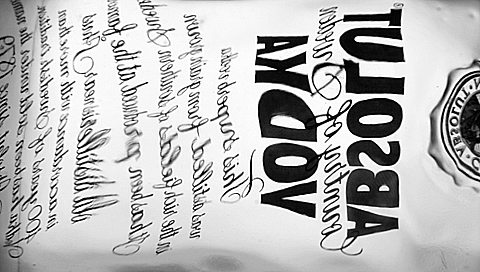 ABSOLUT
Country of Sweden
VODKA
This superb vodka
was distilled from grain grown
in the rich fields of southern
produced at the famous
old distilleries near Åhus
in accordance with more than
400 years of Swedish tradition.
Vodka has been sold under the name
Absolut Since 1879.
ABSOLUT